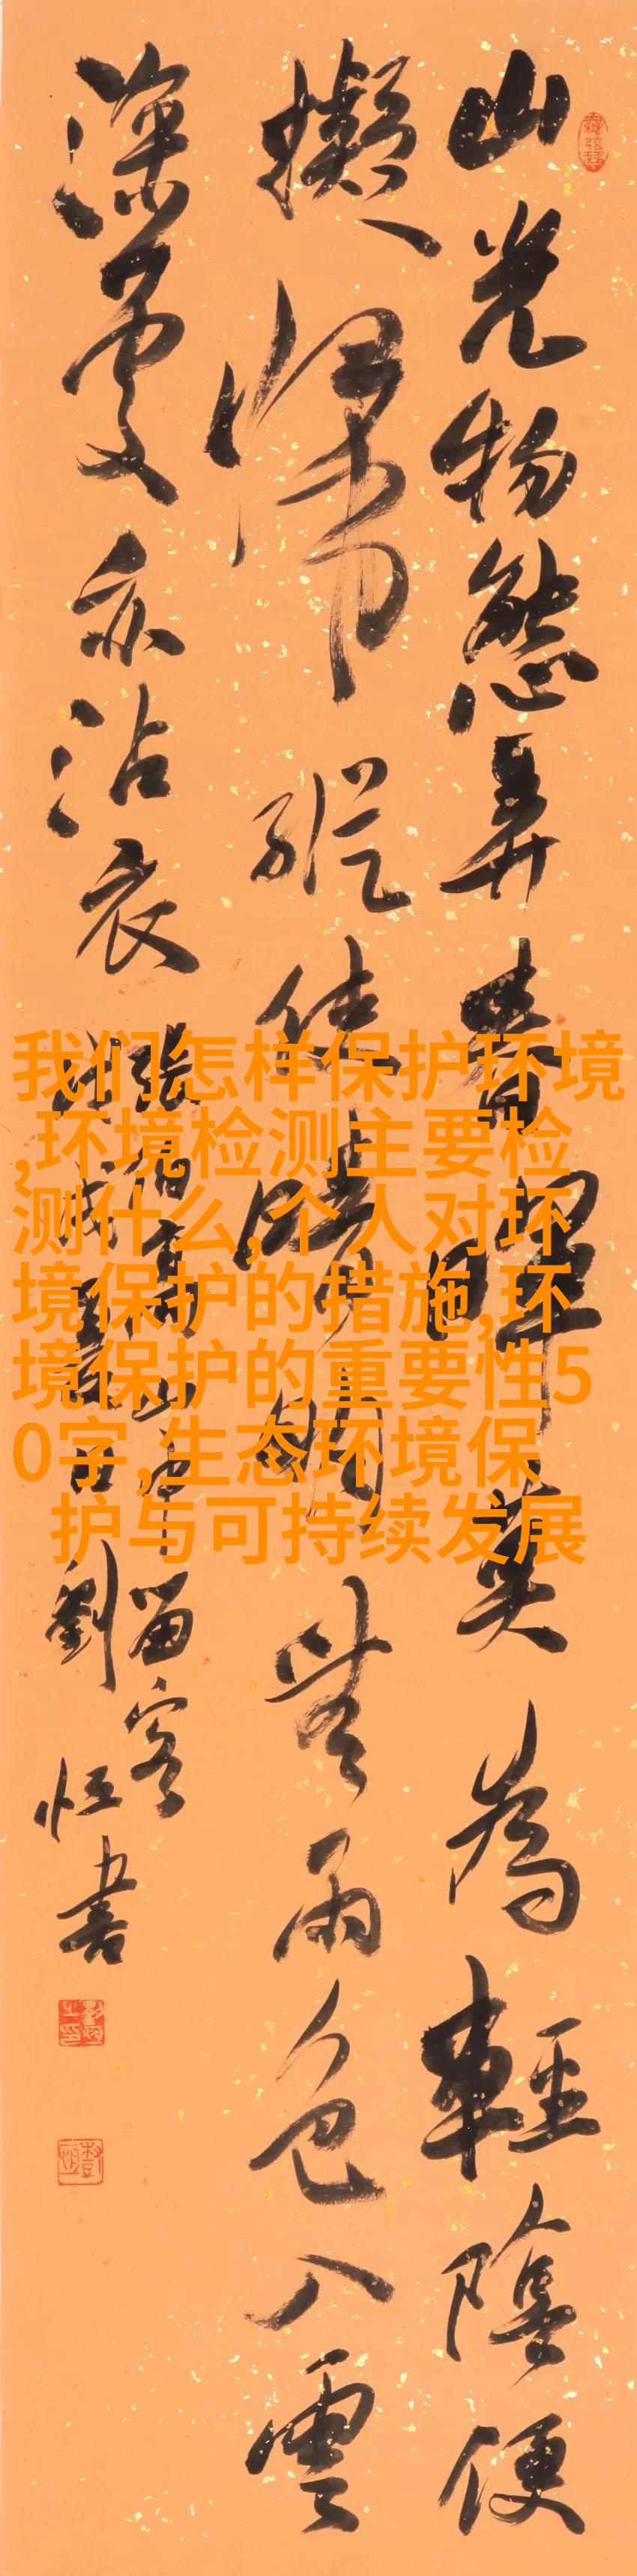 山光物態弄春暉莫為輕陰便
擬歸縱使晴明無雨色入雲
深處亦沾衣
張伯高山中留客
劉恒書
我们怎样保护环境
,环境检测主要检
测什么,个人对环
境保护的措施,环
境保护的重要性5
0字,生态环境保
护与可持续发展